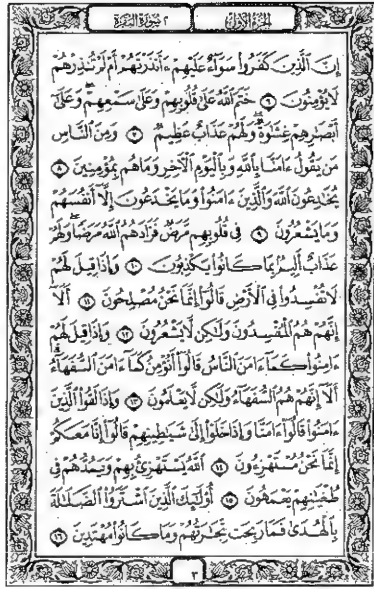 الجزء الأول
٢ سورة البقرة
إِنَّ ٱلَّذِينَ كَفَرُوا۟ سَوَآءٌ عَلَيْهِمْ ءَأَنذَرْتَهُمْ أَمْ لَمْ تُنذِرْهُمْ
لَا يُؤْمِنُونَ ٦ خَتَمَ ٱللَّهُ عَلَىٰ قُلُوبِهِمْ وَعَلَىٰ سَمْعِهِمْ ۖ وَعَلَىٰٓ
أَبْصَٰرِهِمْ غِشَٰوَةٌ ۖ وَلَهُمْ عَذَابٌ عَظِيمٌ ٧ وَمِنَ ٱلنَّاسِ
مَن يَقُولُ ءَامَنَّا بِٱللَّهِ وَبِٱلْيَوْمِ ٱلْءَاخِرِ وَمَا هُم بِمُؤْمِنِينَ ٨
يُخَٰدِعُونَ ٱللَّهَ وَٱلَّذِينَ ءَامَنُوا۟ وَمَا يَخْدَعُونَ إِلَّآ أَنفُسَهُمْ
وَمَا يَشْعُرُونَ ٩ فِى قُلُوبِهِم مَّرَضٌ فَزَادَهُمُ ٱللَّهُ مَرَضًا ۖ وَلَهُمْ
عَذَابٌ أَلِيمٌۢ بِمَا كَانُوا۟ يَكْذِبُونَ ١٠ وَإِذَا قِيلَ لَهُمْ
لَا تُفْسِدُوا۟ فِى ٱلْأَرْضِ قَالُوٓا۟ إِنَّمَا نَحْنُ مُصْلِحُونَ ١١ أَلَآ
إِنَّهُمْ هُمُ ٱلْمُفْسِدُونَ وَلَٰكِن لَّا يَشْعُرُونَ ١٢ وَإِذَا قِيلَ لَهُمْ
ءَامِنُوا۟ كَمَآ ءَامَنَ ٱلنَّاسُ قَالُوٓا۟ أَنُؤْمِنُ كَمَآ ءَامَنَ ٱلسُّفَهَآءُ ۗ
أَلَآ إِنَّهُمْ هُمُ ٱلسُّفَهَآءُ وَلَٰكِن لَّا يَعْلَمُونَ ١٣ وَإِذَا لَقُوا۟ ٱلَّذِينَ
ءَامَنُوا۟ قَالُوٓا۟ ءَامَنَّا وَإِذَا خَلَوْا۟ إِلَىٰ شَيَٰطِينِهِمْ قَالُوٓا۟ إِنَّا مَعَكُمْ
إِنَّمَا نَحْنُ مُسْتَهْزِءُونَ ١٤ ٱللَّهُ يَسْتَهْزِئُ بِهِمْ وَيَمُدُّهُمْ فِى
طُغْيَٰنِهِمْ يَعْمَهُونَ ١٥ أُو۟لَٰٓئِكَ ٱلَّذِينَ ٱشْتَرَوُا۟ ٱلضَّلَٰلَةَ
بِٱلْهُدَىٰ فَمَا رَبِحَت تِّجَٰرَتُهُمْ وَمَا كَانُوا۟ مُهْتَدِينَ ١٦
٣